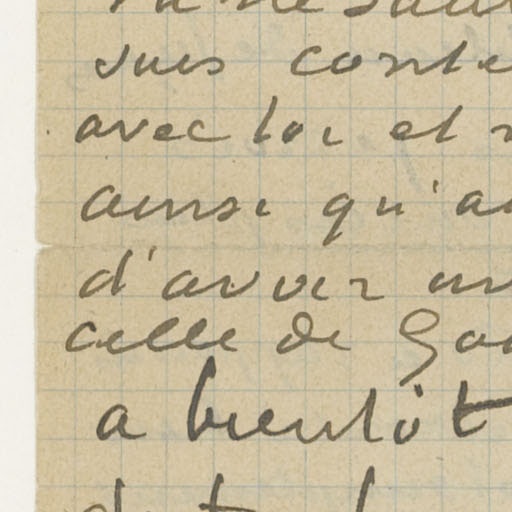 suis conte
avec toi et
ainsi qu'a
d'avoir un
celle de
a bientôt